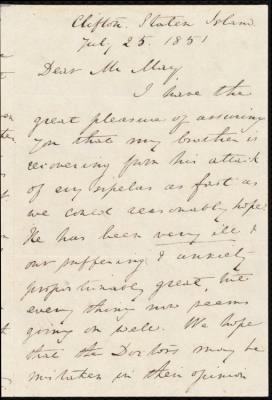 Clifton, Staten Island
July 25. 1851
Dear Mr May
I have the
great pleasure of assuring
you that my brother is
recovering from his attack
of erysipelas as fast as
we could reasonably hope.
He has been very ill &
our suffering & anxiety
proportionably great, but
every thing now seems
going on well. We hope
that the Doctors may be
mistaken in their opinion